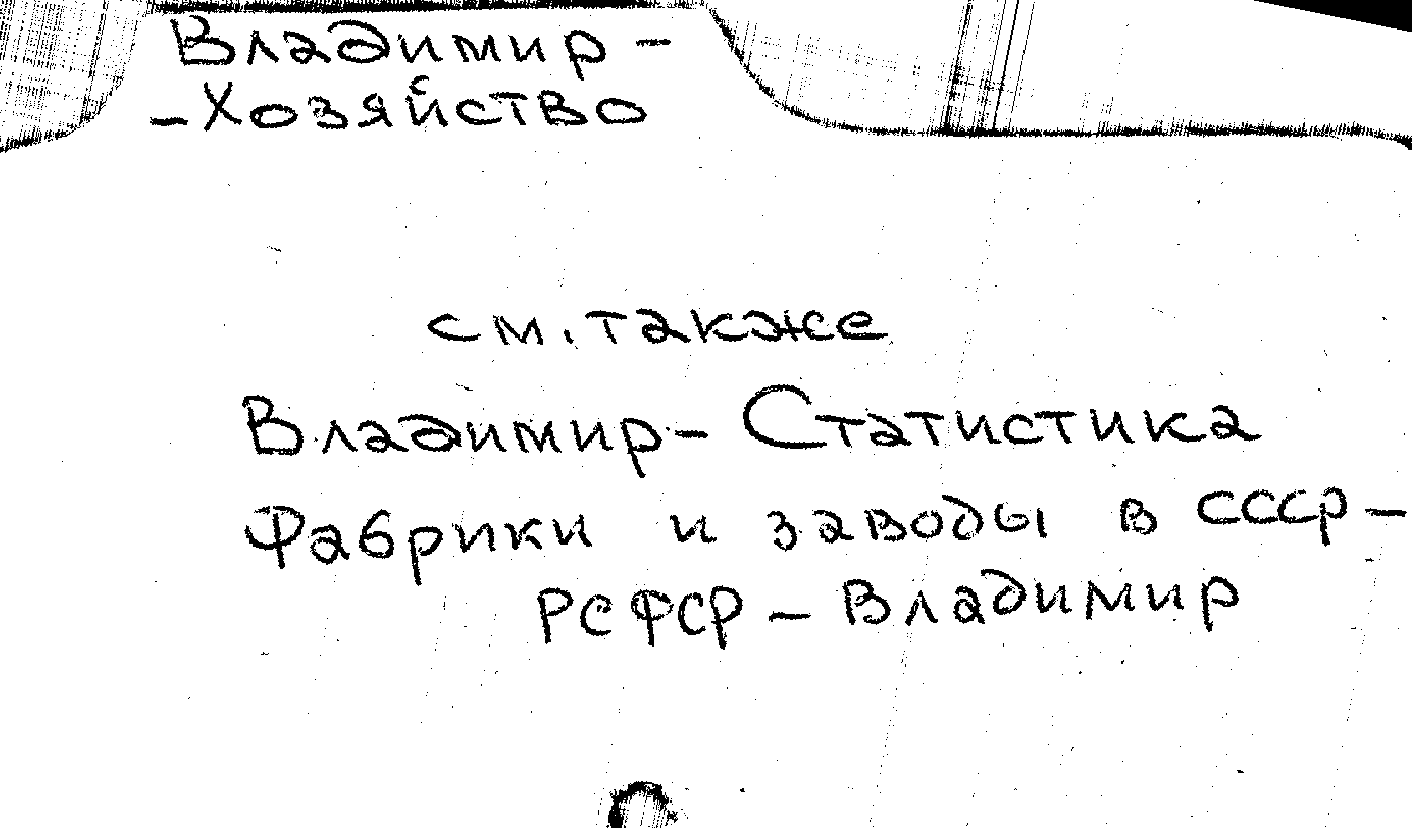 Владимир -
- Хозяйство
см. также
Владимир - Статистика
Фабрики и заводы в СССР -
РСФСР - Владимир